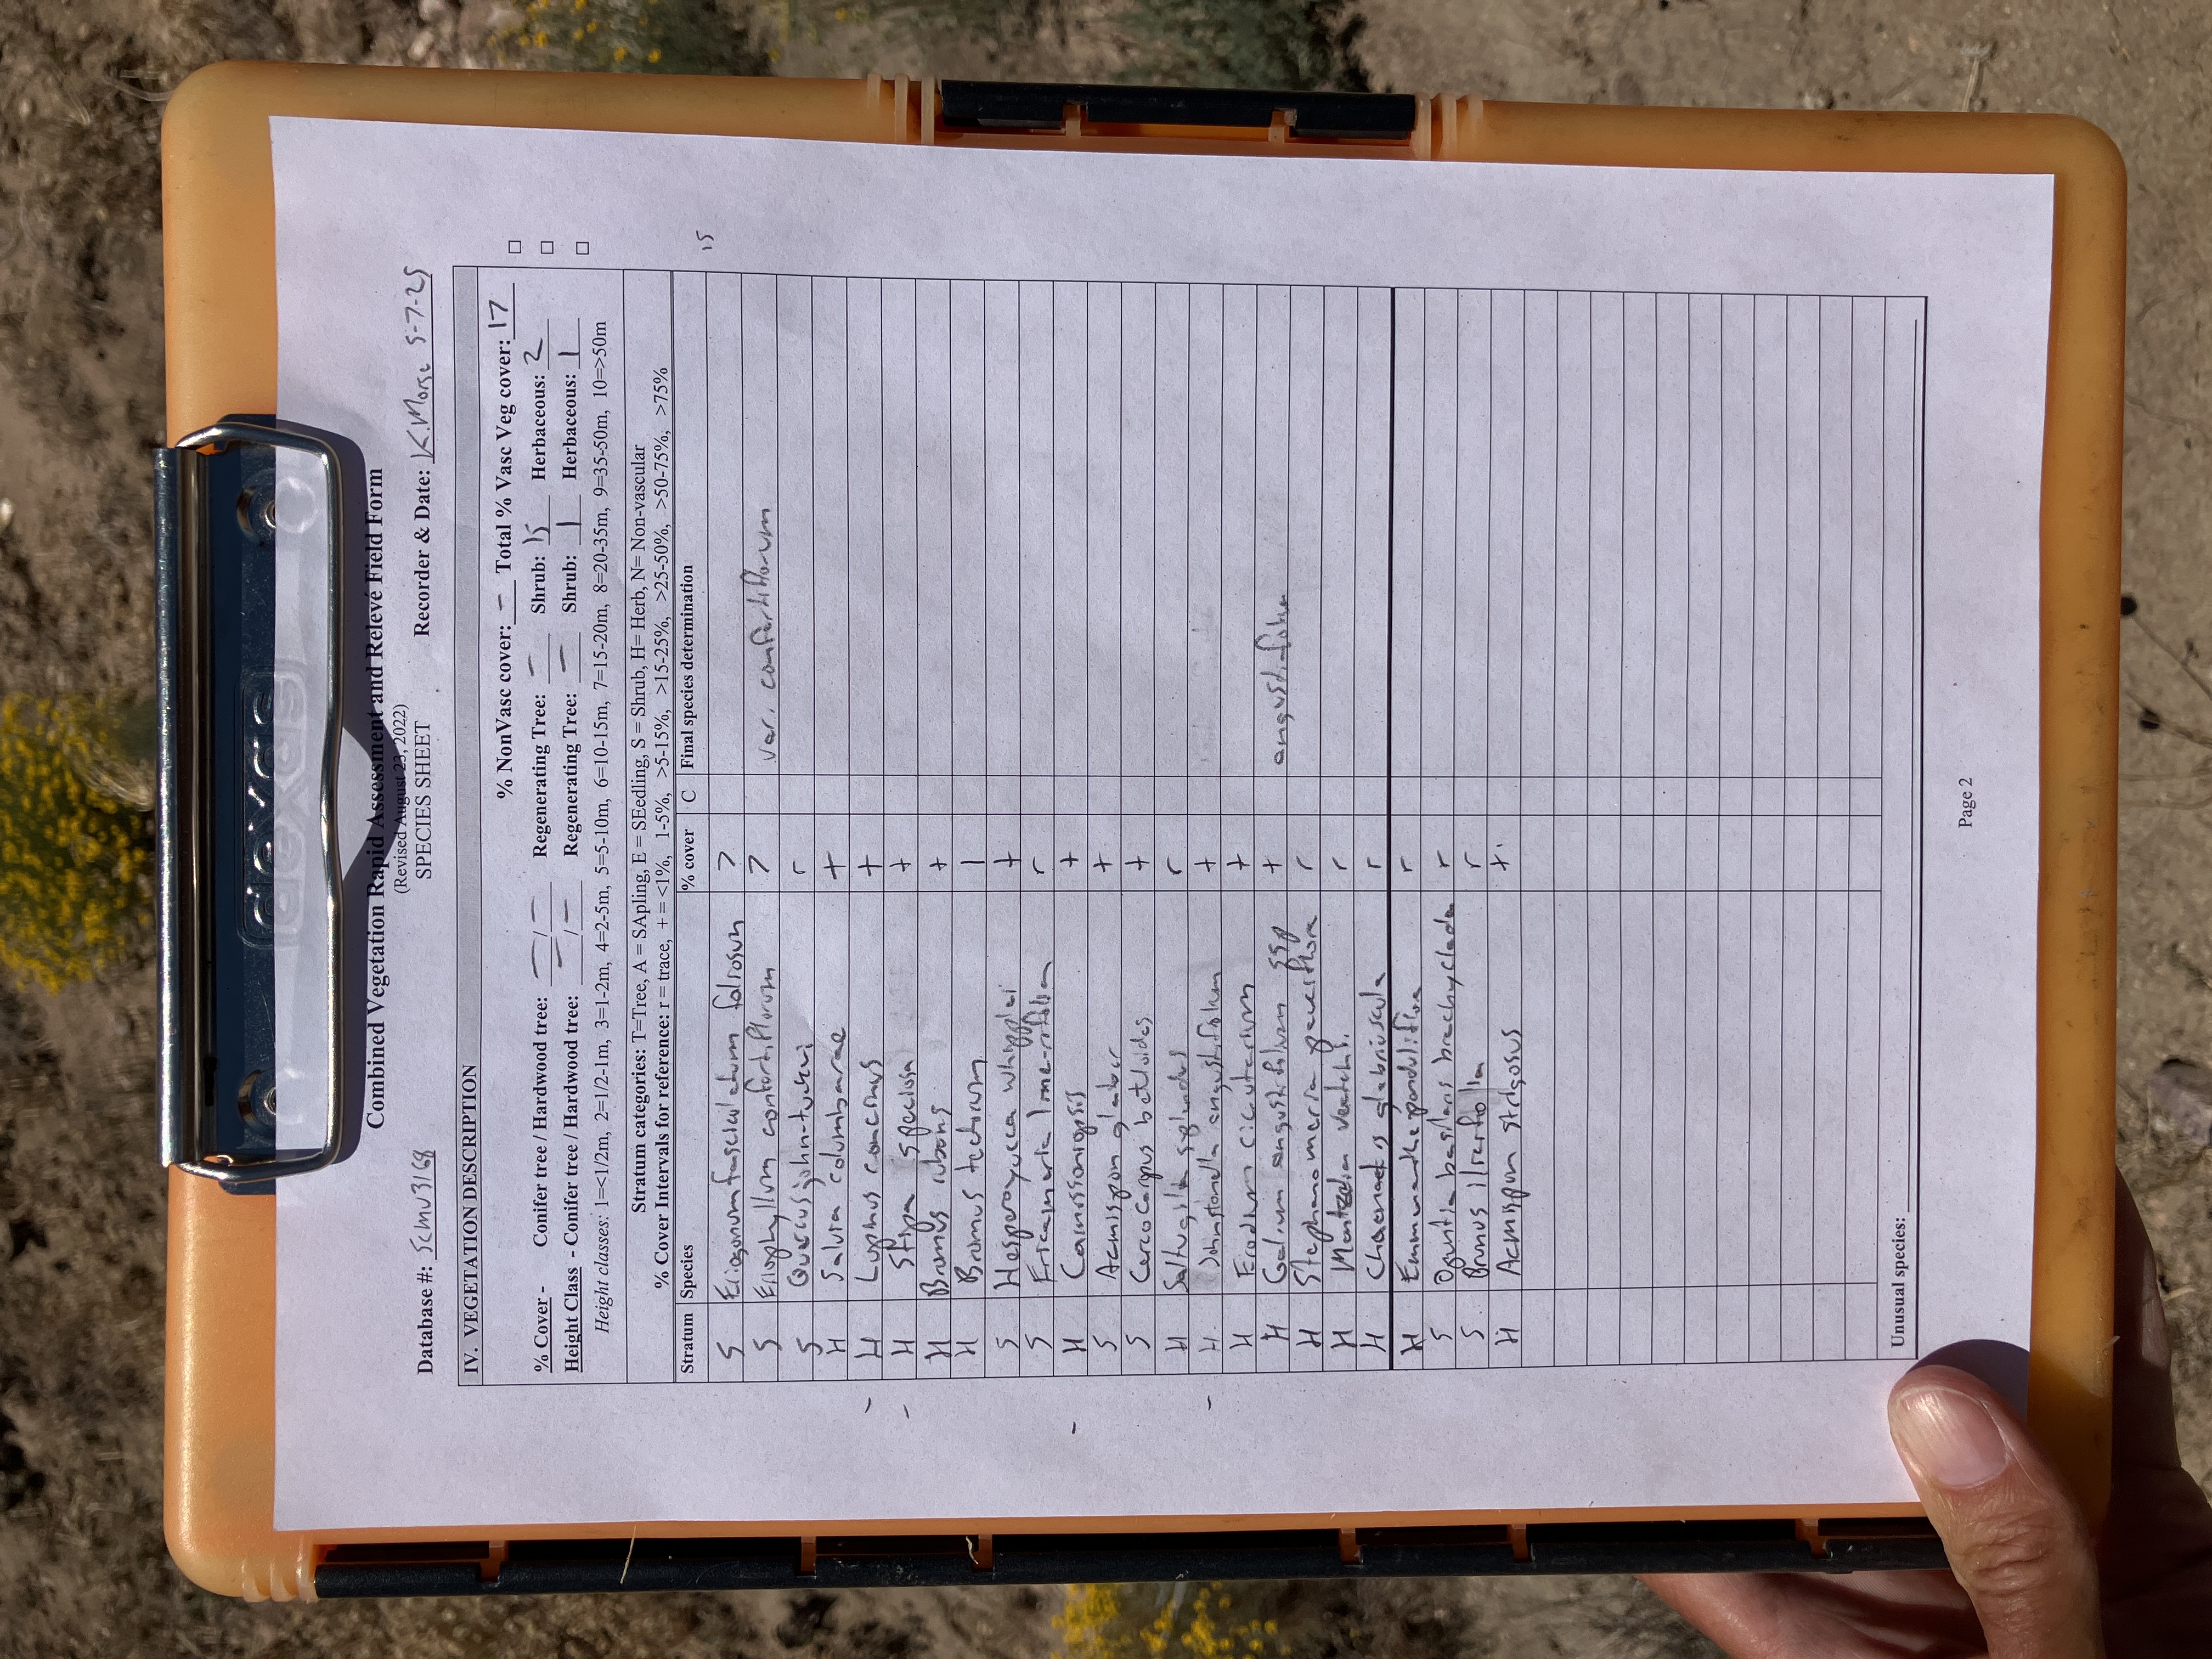 dexas
Combined Vegetation Rapid Assessment and Relevé Field Form
(Revised August 23, 2022)
SPECIES SHEET
Database #: Recorder & Date: K. Morse 5-7-25
IV. VEGETATION DESCRIPTION
% NonVasc cover: - Total % Vasc Veg cover: 17 □
% Cover - Conifer tree / Hardwood tree: - / - Regenerating Tree: - Shrub: 15 Herbaceous: 2 □
Height Class - Conifer tree / Hardwood tree: - / - Regenerating Tree: - Shrub: 1 Herbaceous: 1 □
Height classes: 1=<1/2m, 2=1/2-1m, 3=1-2m, 4=2-5m, 5=5-10m, 6=10-15m, 7=15-20m, 8=20-35m, 9=35-50m, 10=>50m
Stratum categories: T=Tree, A = SApling, E = SEedling, S = Shrub, H= Herb, N= Non-vascular
% Cover Intervals for reference: r = trace, + = <1%, 1-5%, >5-15%, >15-25%, >25-50%, >50-75%, >75%
Stratum Species % cover C Final species determination
S Eriogonum fasciculatum foliosum 7 15
S Eriophyllum confertiflorum 7 var. confertiflorum
S Quercus john-tuckeri r
H Salvia columbariae +
- H Lupinus concinnus +
- H Stipa speciosa +
H Bromus rubens +
H Bromus tectorum 1
S Hesperoyucca whipplei +
S Ericameria linearifolia r
- H Camissoniopsis +
S Acmispon glaber +
S Cercocarpus betuloides +
H Saltugilia splendens r
- H. Johnstonella angustifolium +
H Erodium cicutarium +
H Galium angustifolium ssp + angustifolium
H Stephanomeria pauciflora r
H Mentzelia veatchi. r
H Chaenactis glabriuscula r
H Emmenanthe penduliflora r
S Opuntia basilaris brachyclada r
S Prunus ilicifolia r
H Acmispon strigosus +.
Unusual species:
Page 2